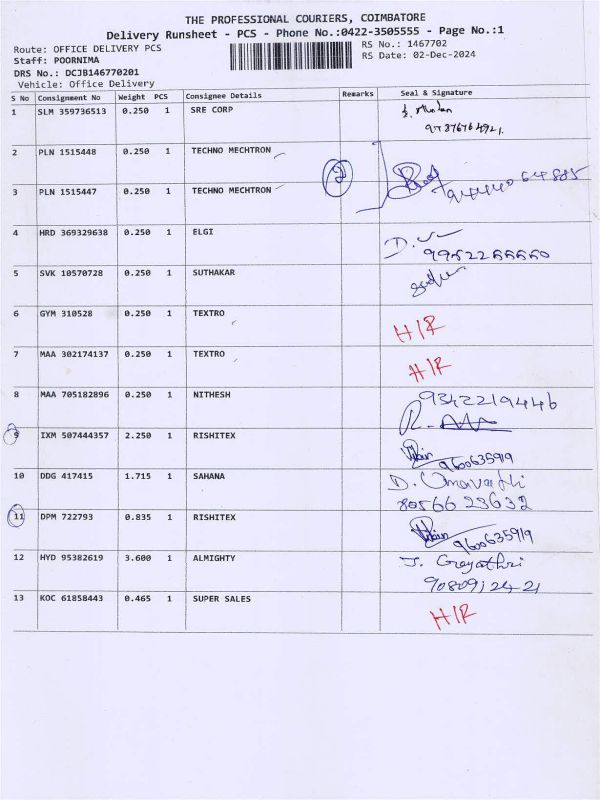 THE PROFESSIONAL COURIERS, COIMBATORE
Delivery Runsheet - PCS - Phone No.:0422-3505555 - Page No.:1
Route: OFFICE DELIVERY PCS
RS No.: 1467702
Staff: POORNIMA
RS Date: 02-Dec-2024
DRS No.: DCJB146770201
Vehicle: Office Delivery
S No Consignment No Weight PCS Consignee Details Remarks Seal & Signature
1 SLM 359736513 0.250 1 SRE CORP
2 PLN 1515448 0.250 1 TECHNO MECHTRON
2
3 PLN 1515447 0.250 1 TECHNO MECHTRON
4 HRD 369329638 0.250 1 ELGI
5 SVK 10570728 0.250 1 SUTHAKAR
6 GYM 310528 0.250 1 TEXTRO H/R
7 MAA 302174137 0.250 1 TEXTRO H/R
8 MAA 705182896 0.250 1 NITHESH 9342219446
9 IXM 507444357 2.250 1 RISHITEX
9600635919
10 DDG 417415 1.715 1 SAHANA D. Umavathi
8056623632
11 DPM 722793 0.835 1 RISHITEX
9600635919
12 HYD 95382619 3.600 1 ALMIGHTY J. Gayathri
9080912421
13 KOC 61858443 0.465 1 SUPER SALES H/R